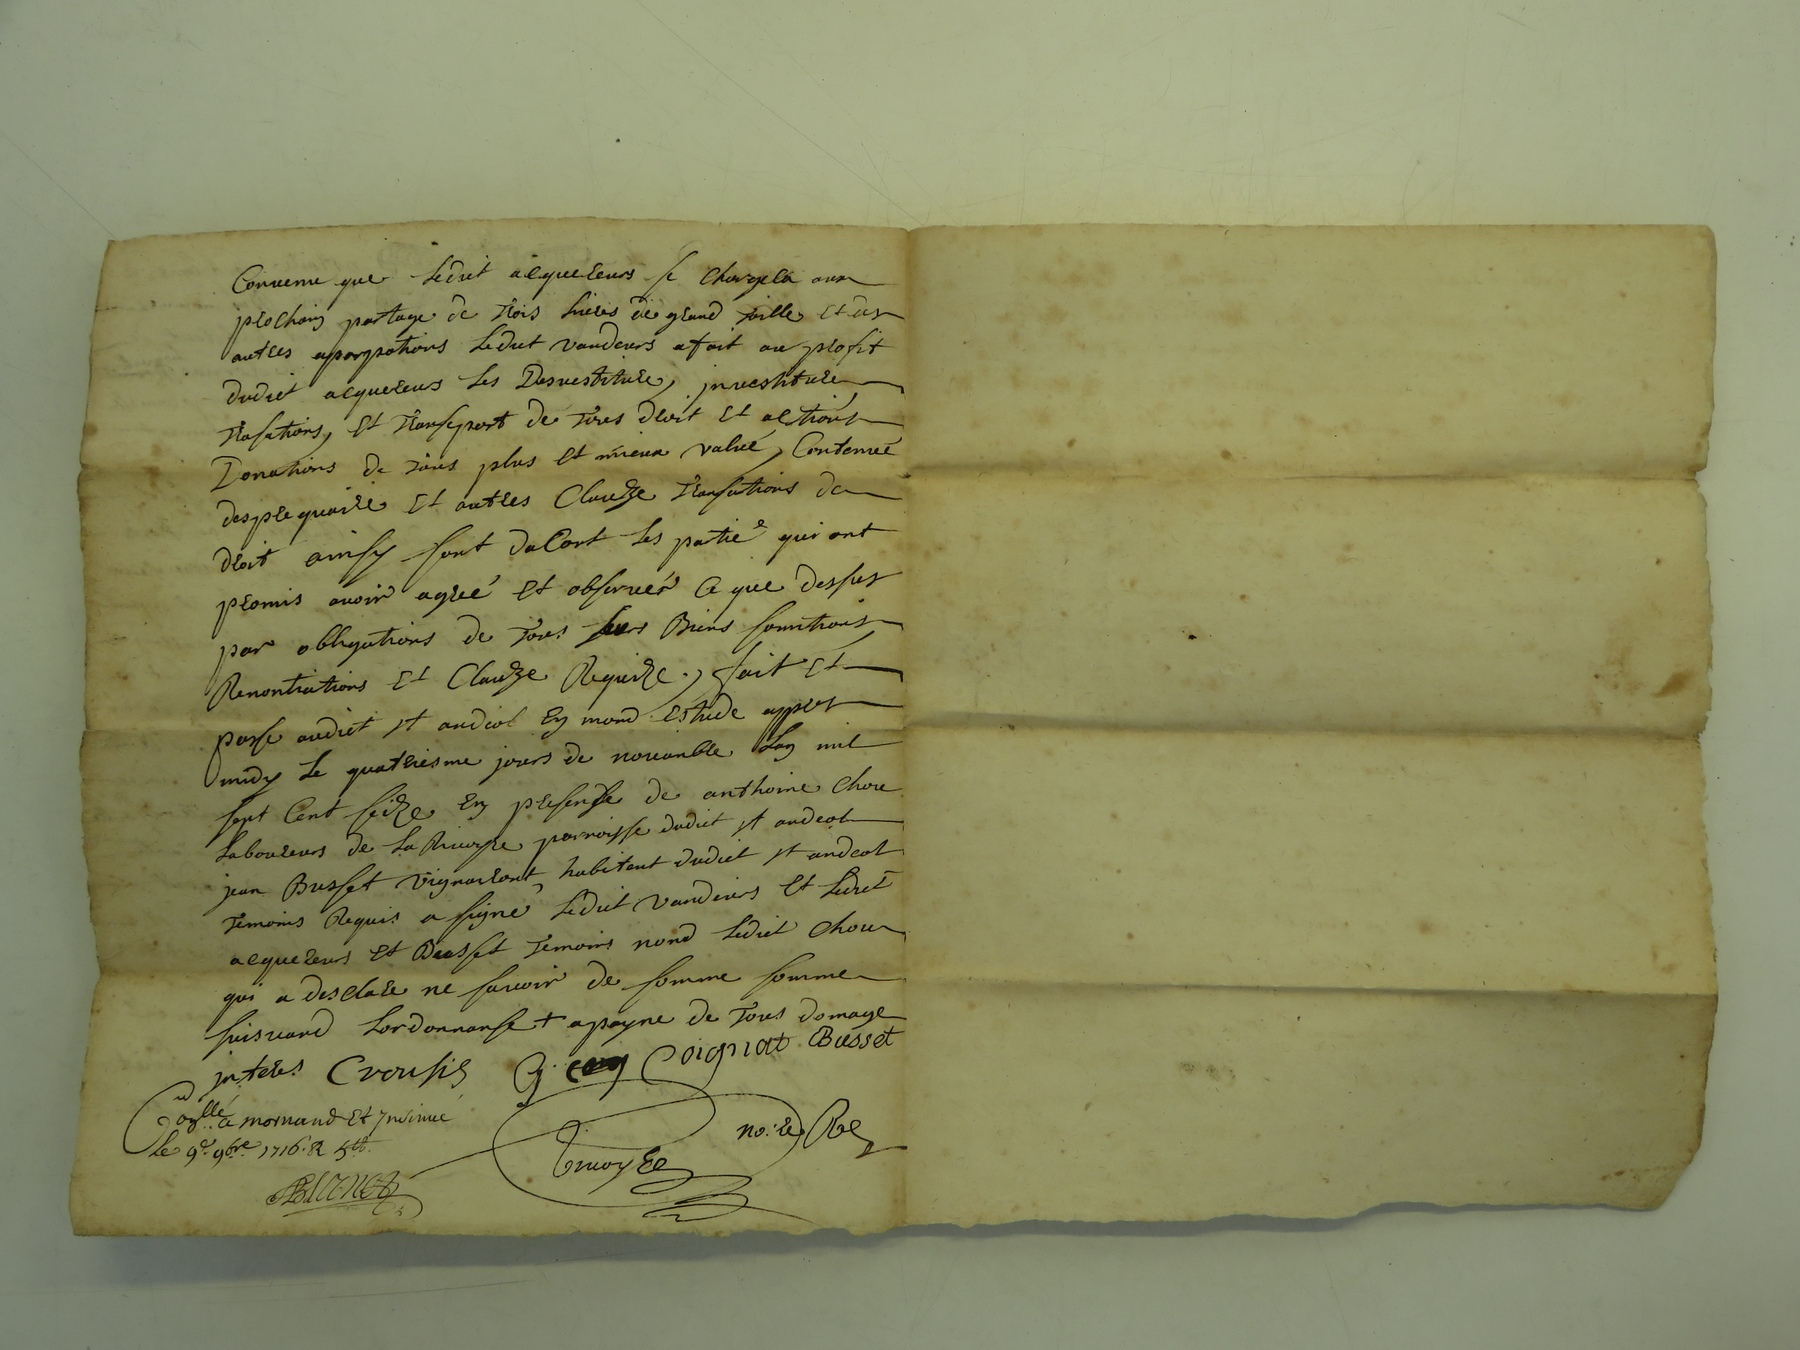 Conuenu que ledict acquereurs se chargera aux
prochain partage de trois liures de grand taille et des
autres apargations ledict vandeurs a fait au profit
dudict acquereurs les Desuestiture, jnuestiture
trasations, et transport de tous droit et actions
Donations de tous plus et mieux valué, Contenué
desprequaire et autres Clauze translations de
droit ainsy sont dacort les partie qui ont
promis auoir agreé et obseruer ce que dessus
par obligations de tous leurs Biens soumitions
Renontiations et Clauze Requize, fait et
passe audict st andeol En mond Estude appres
midy le quatriesme jours de nouanbre Lan mil
sept Cent seize En presense de anthoine choue
laboureurs de la Riuoyre parroisse dudict st andeol
jean Busset vigneront habitent dudict st andeol
temoins Requis a signé ledict vandeurs et ledict
acquereurs et Busset temoins nond ledict choue
qui a desclare ne sauoir de somme somme
suiuand Lordonnanse + a payne de tous domage
jnteres Crousis Coignat Busset
Con^llé a mornand et Jnsinué
Le 9e 9bre 1716. R
no:re R